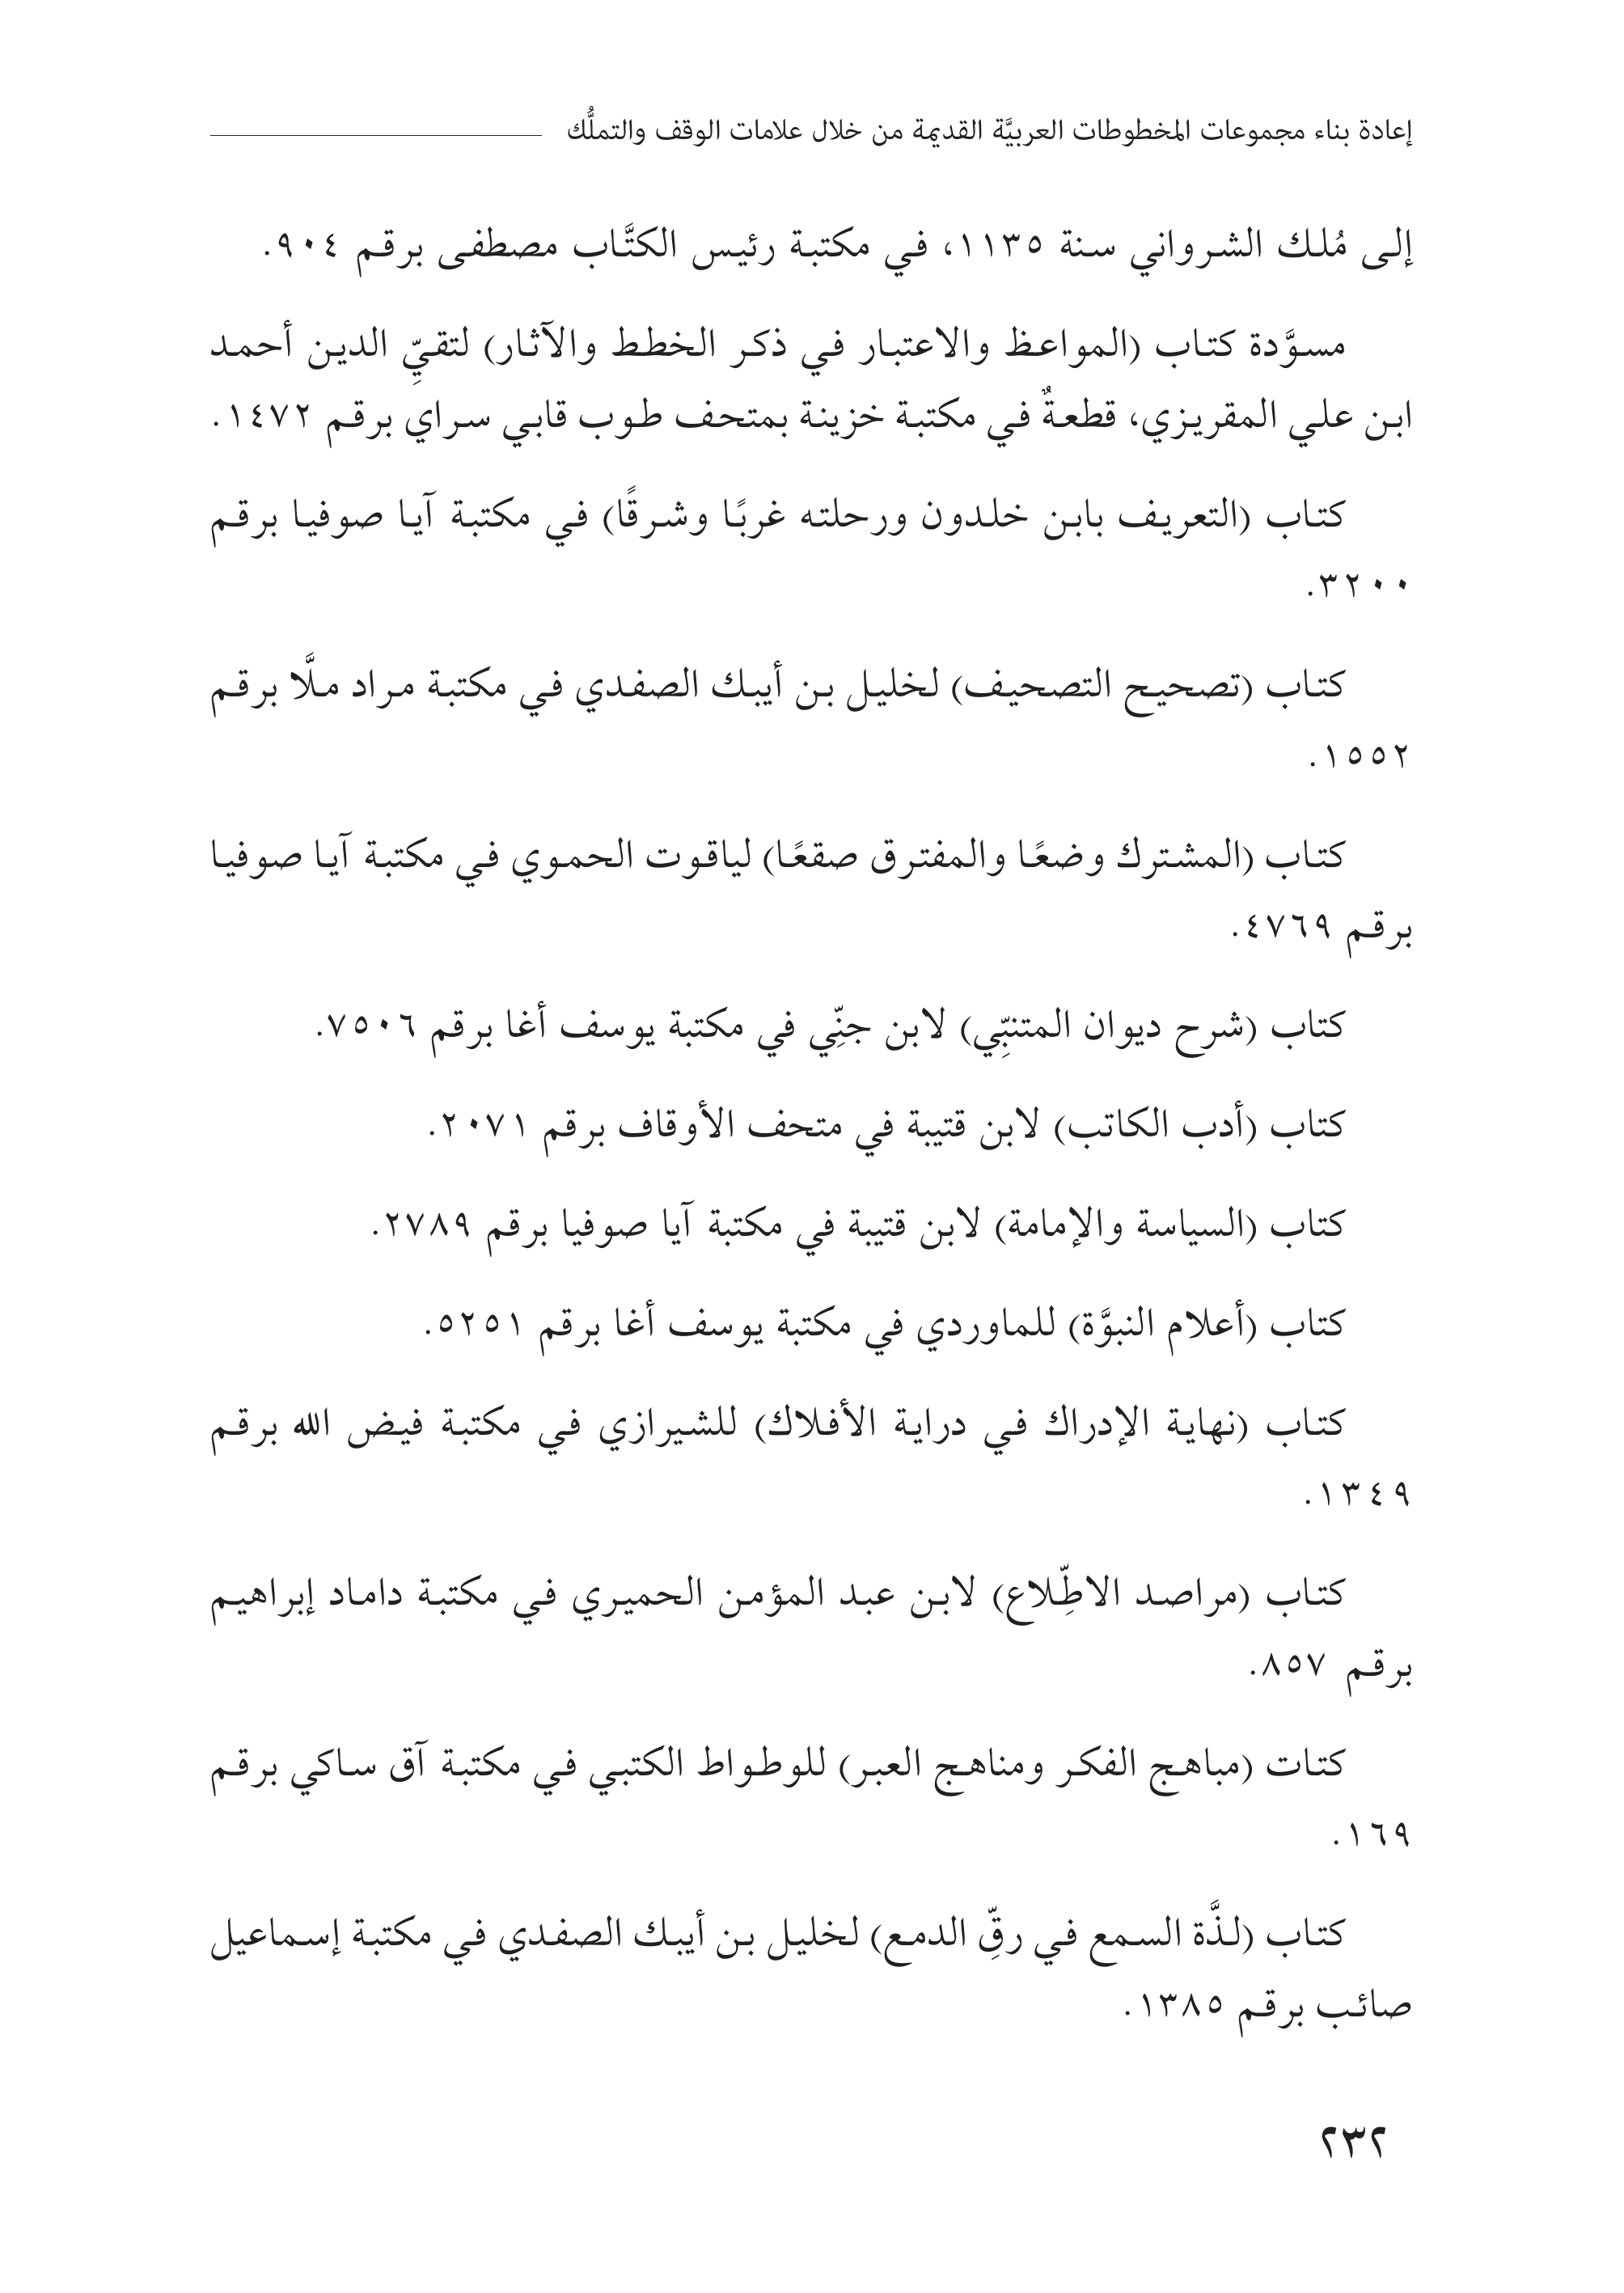 إعادة بناء مجموعات المخطوطات العربيَّة القديمة من خلال علامات الوقف والتملُّك
إلى مُلك الشرواني سنة ١١٣٥، في مكتبة رئيس الكتَّاب مصطفى برقم ٩٠٤.
مسوَّدة كتاب (المواعظ والاعتبار في ذكر الخطط والآثار) لتقيِّ الدين أحمد
ابن علي المقريزي، قطعةٌ في مكتبة خزينة بمتحف طوب قابي سراي برقم ١٤٧٢.
كتاب (التعريف بابن خلدون ورحلته غربًا وشرقًا) في مكتبة آيا صوفيا برقم
٣٢٠٠.
كتاب (تصحيح التصحيف) لخليل بن أيبك الصفدي في مكتبة مراد ملَّا برقم
١٥٥٢.
كتاب (المشترك وضعًا والمفترق صقعًا) لياقوت الحموي في مكتبة آيا صوفيا
برقم ٤٧٦٩.
كتاب (شرح ديوان المتنبِّي) لابن جنِّي في مكتبة يوسف أغا برقم ٧٥٠٦.
كتاب (أدب الكاتب) لابن قتيبة في متحف الأوقاف برقم ٢٠٧١.
كتاب (السياسة والإمامة) لابن قتيبة في مكتبة آيا صوفيا برقم ٢٧٨٩.
كتاب (أعلام النبوَّة) للماوردي في مكتبة يوسف أغا برقم ٥٢٥١.
كتاب (نهاية الإدراك في دراية الأفلاك) للشيرازي في مكتبة فيض الله برقم
١٣٤٩.
كتاب (مراصد الاطِّلاع) لابن عبد المؤمن الحميري في مكتبة داماد إبراهيم
برقم ٨٥٧.
كتات (مباهج الفكر ومناهج العبر) للوطواط الكتبي في مكتبة آق ساكي برقم
١٦٩.
كتاب (لذَّة السمع في رقِّ الدمع) لخليل بن أيبك الصفدي في مكتبة إسماعيل
صائب برقم ١٣٨٥.
٢٣٢